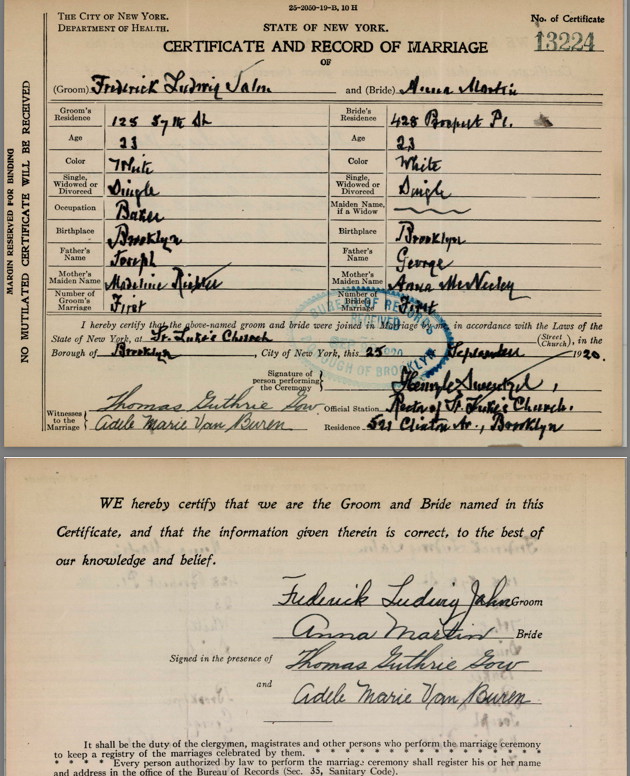 25-2050-19-B, 10 H
THE CITY OF NEW YORK.
DEPARTMENT OF HEALTH.
STATE OF NEW YORK.
No. of Certificate
13224
CERTIFICATE AND RECORD OF MARRIAGE
OF
(Groom) Frederick Ludwig Jahn and (Bride) Anna Martin
Groom's Residence 125 57th St Bride's Residence 428 Prospect Pl.
Age 23 Age 23
Color White Color White
Single, Widowed or Divorced Single Single, Widowed or Divorced Single
Occupation Baker Maiden Name, if a Widow
Birthplace Brooklyn Birthplace Brooklyn
Father's Name Joseph Father's Name George
Mother's Maiden Name Madeline Mother's Maiden Name Anna McNeeley
Number of Groom's Marriage First Number of Bride's Marriage First
I hereby certify that the above-named groom and bride were joined in Marriage by me, in accordance with the Laws of the
State of New York, at St. Luke's Church (Street Church), in the
Borough of Brooklyn, City of New York, this 25 September 1920.
BUREAU OF RECORDS
RECEIVED
BOROUGH OF BROOKLYN
Signature of person performing the Ceremony
Witnesses to the Marriage
Thomas Guthrie Gow
Adele Marie Van Buren
Official Station Rector of St. Luke's Church.
Residence 521 Clinton Av., Brooklyn
MARGIN RESERVED FOR BINDING
NO MUTILATED CERTIFICATE WILL BE RECEIVED
WE hereby certify that we are the Groom and Bride named in this
Certificate, and that the information given therein is correct, to the best of
our knowledge and belief.
Frederick Ludwig Jahn Groom
Anna Martin Bride
Signed in the presence of Thomas Guthrie Gow
and Adele Marie Van Buren
It shall be the duty of the clergymen, magistrates and other persons who perform the marriage ceremony
to keep a registry of the marriages celebrated by them. * * * * * * * * * * * * * * *
* * * * * Every person authorized by law to perform the marriage ceremony shall register his or her name
and address in the office of the Bureau of Records (Sec. 35, Sanitary Code).